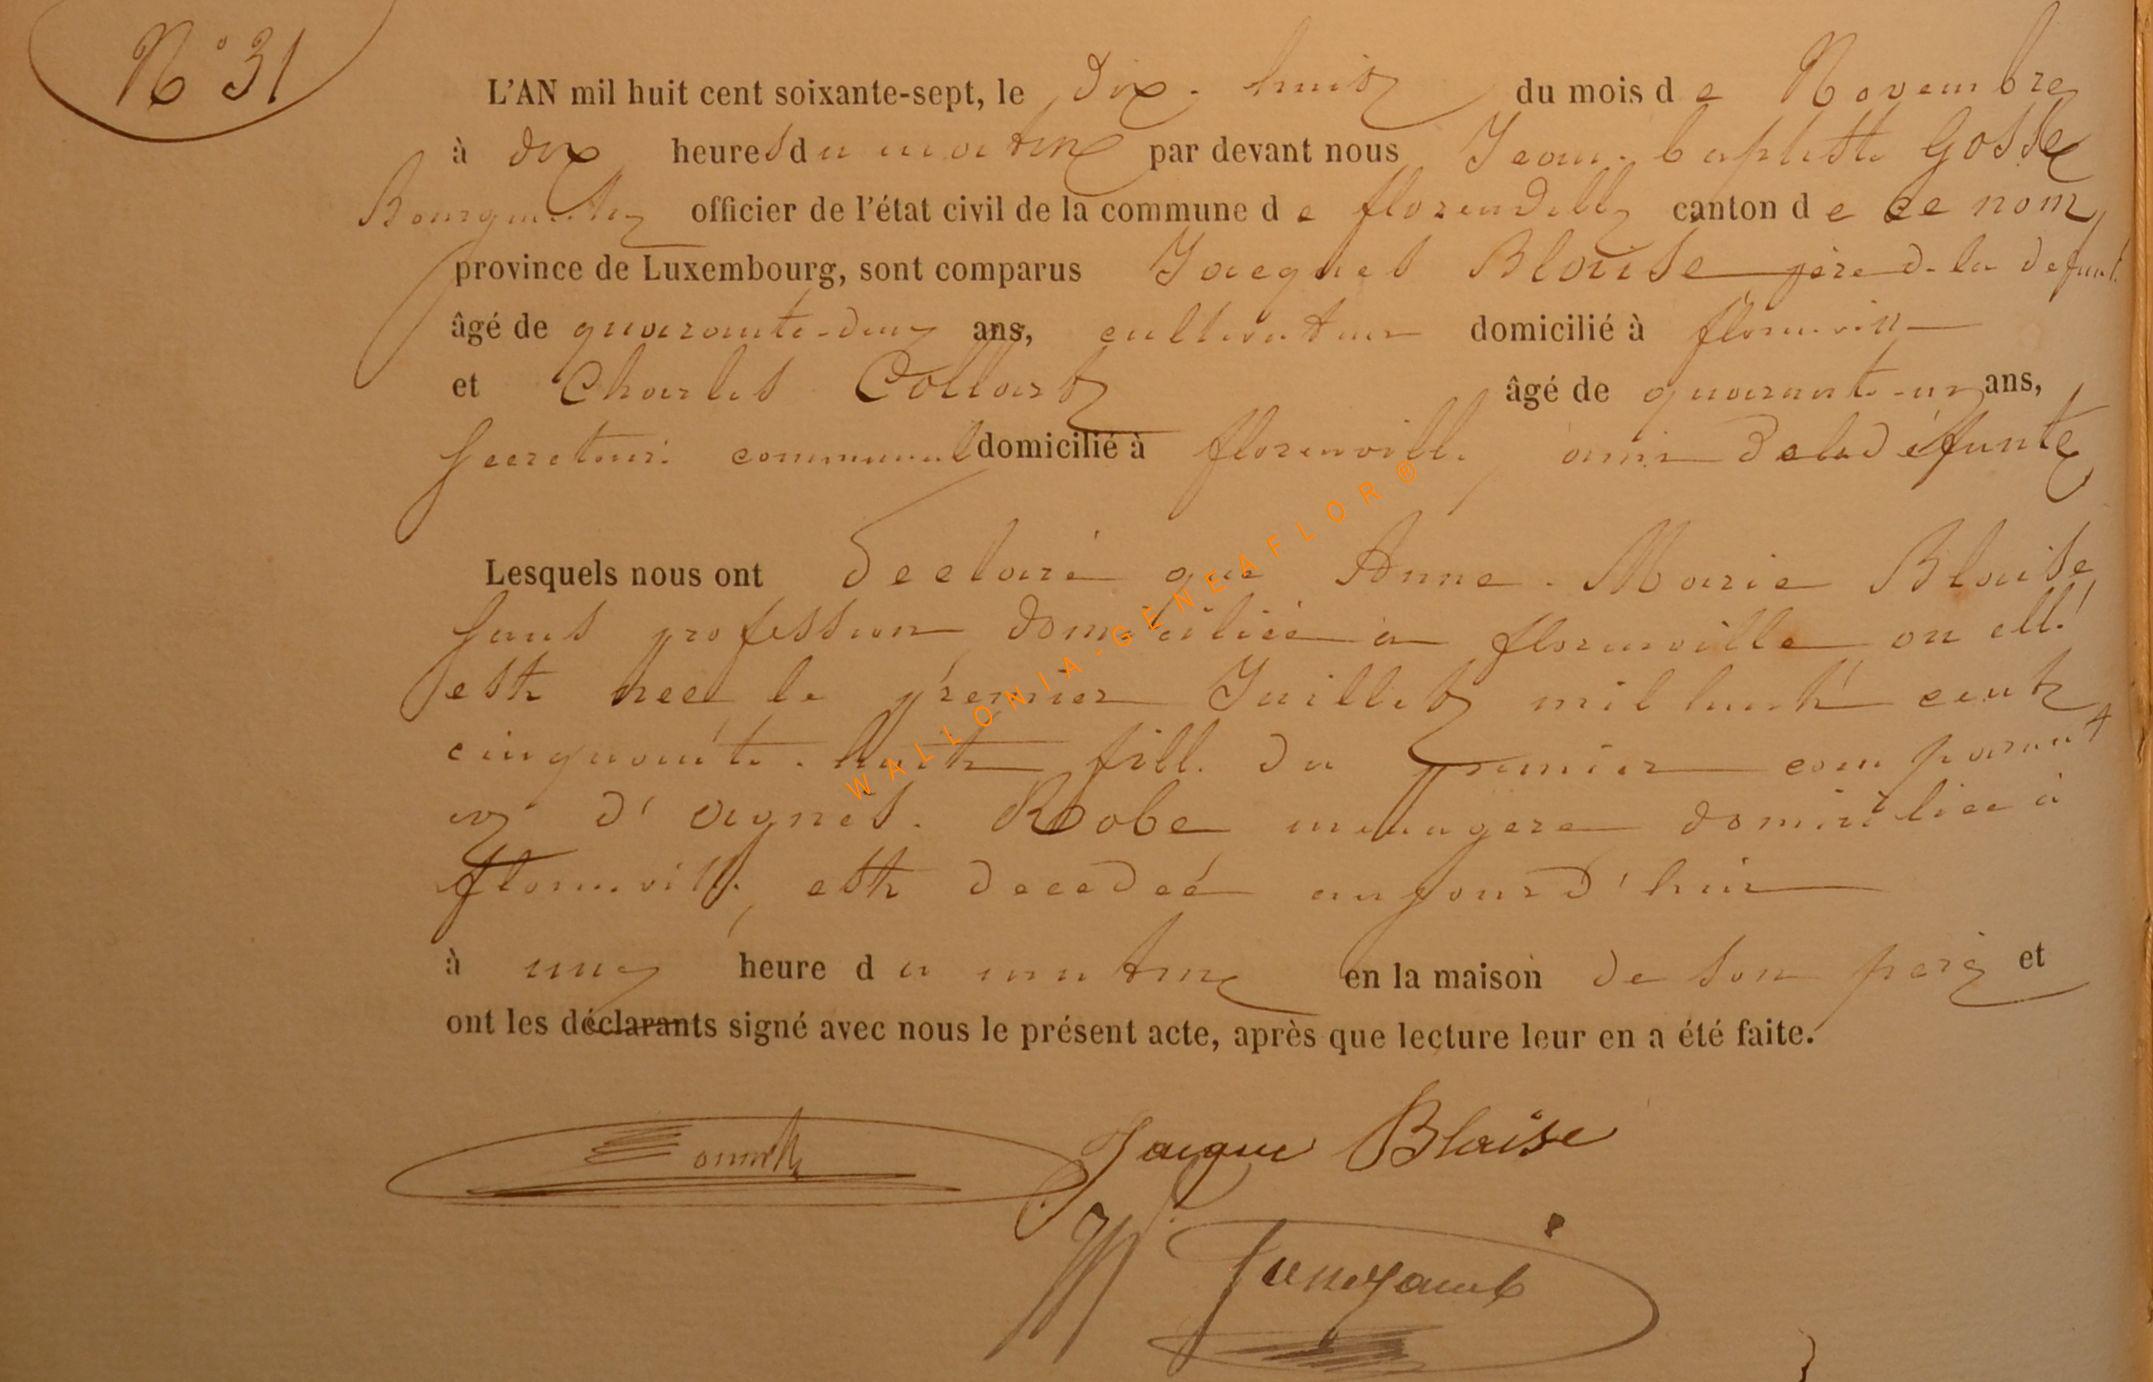 N° 31
L'AN mil huit cent soixante-sept, le dix-huit du mois de Novembre
à dix heures du matin par devant nous Jean-baptiste Gosse
Bourgmestre officier de l'état civil de la commune de florenville canton de ce nom,
province de Luxembourg, sont comparus Jacques Blaise père de la defunte
âgé de quarante-deux ans, cultivateur domicilié à florenville
et Charles Collart âgé de quarante-un ans,
Secretaire communal domicilié à florenville, ami de la défunte
Lesquels nous ont declaré que Anne-Marie Blaise
sans profession domiciliée à florenville ou elle
est née le premier Juillet mil huit cent
cinquante-huit fille du premier comparant
et d'Agnes Robe menagere domiciliée à
florenville, est decedée aujourd'hui
à une heure du matin en la maison de son père et
ont les déclarants signé avec nous le présent acte, après que lecture leur en a été faite.
Jacque Blaise
WALLONIA-GÉNÉAFLOR®